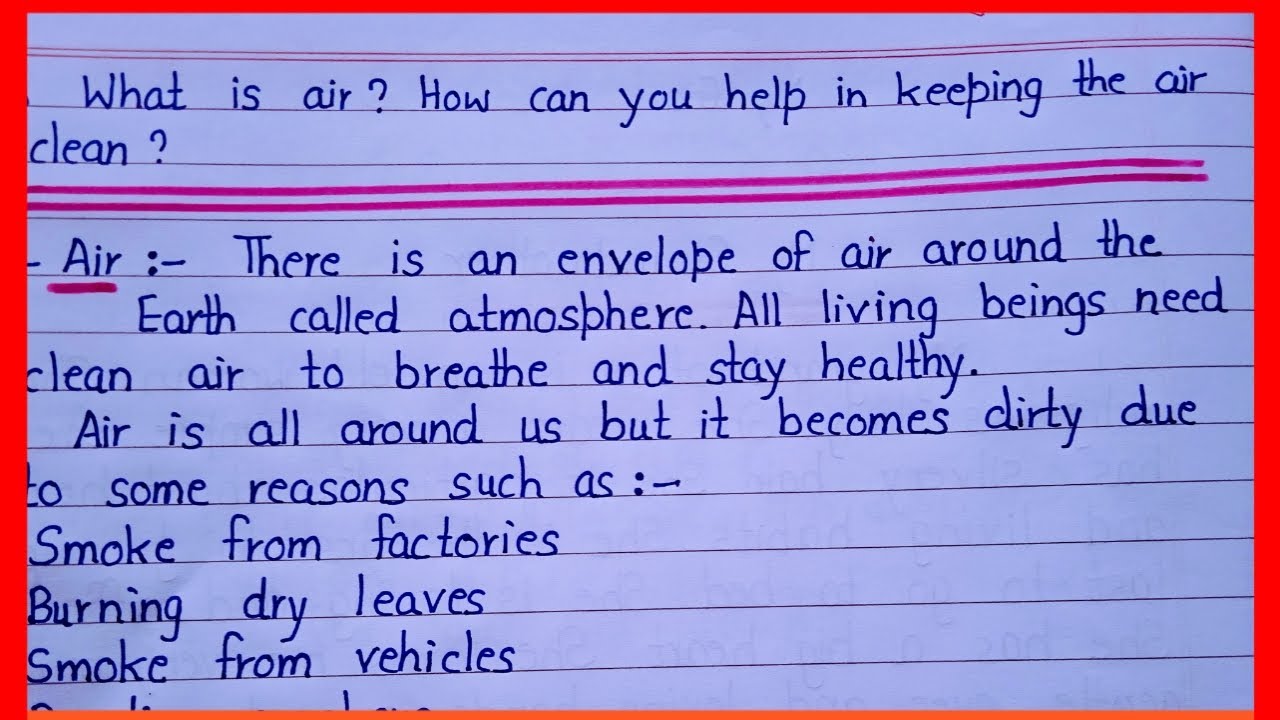 What is air? How can you help in keeping the air
clean?
- Air :- There is an envelope of air around the
Earth called atmosphere. All living beings need
clean air to breathe and stay healthy.
Air is all around us but it becomes dirty due
to some reasons such as :-
Smoke from factories
Burning dry leaves
Smoke from vehicles